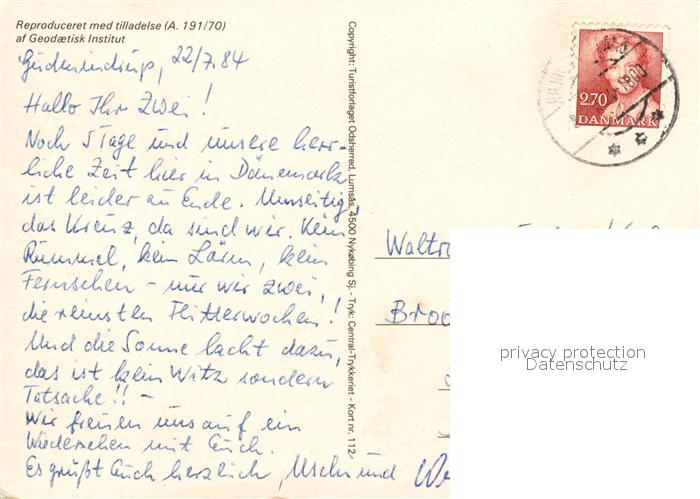 Reproduceret med tilladelse (A. 191/70)
af Geodætisk Institut
Gudmindrup, 22/7.84
Hallo Ihr Zwei!
Noch 5 Tage und unsere herr-
liche Zeit hier in Dänemark
ist leider zu Ende. Umseitig
das Kreuz, da sind wir. Kein
Rummel, kein Lärm, kein
Fernsehen - nur wir zwei,
die reinsten Flitterwochen!!
Und die Sonne lacht dazu,
das ist kein Witz sondern
Tatsache!! -
Wir freuen uns auf ein
Wiedersehen mit Euch.
Es grüßt Euch herzlich, Uschi und
Copyright: Turistforlaget Odsherred, Lumsås, 4500 Nykøbing Sj. - Tryk: Central-Trykkeriet - Kort nr. 112-
2.70
DANMARK
Waltr
Broo
privacy protection
Datenschutz